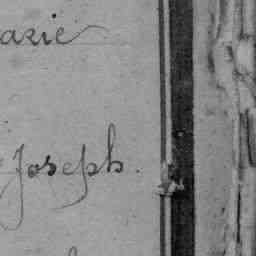 arie
Joseph.